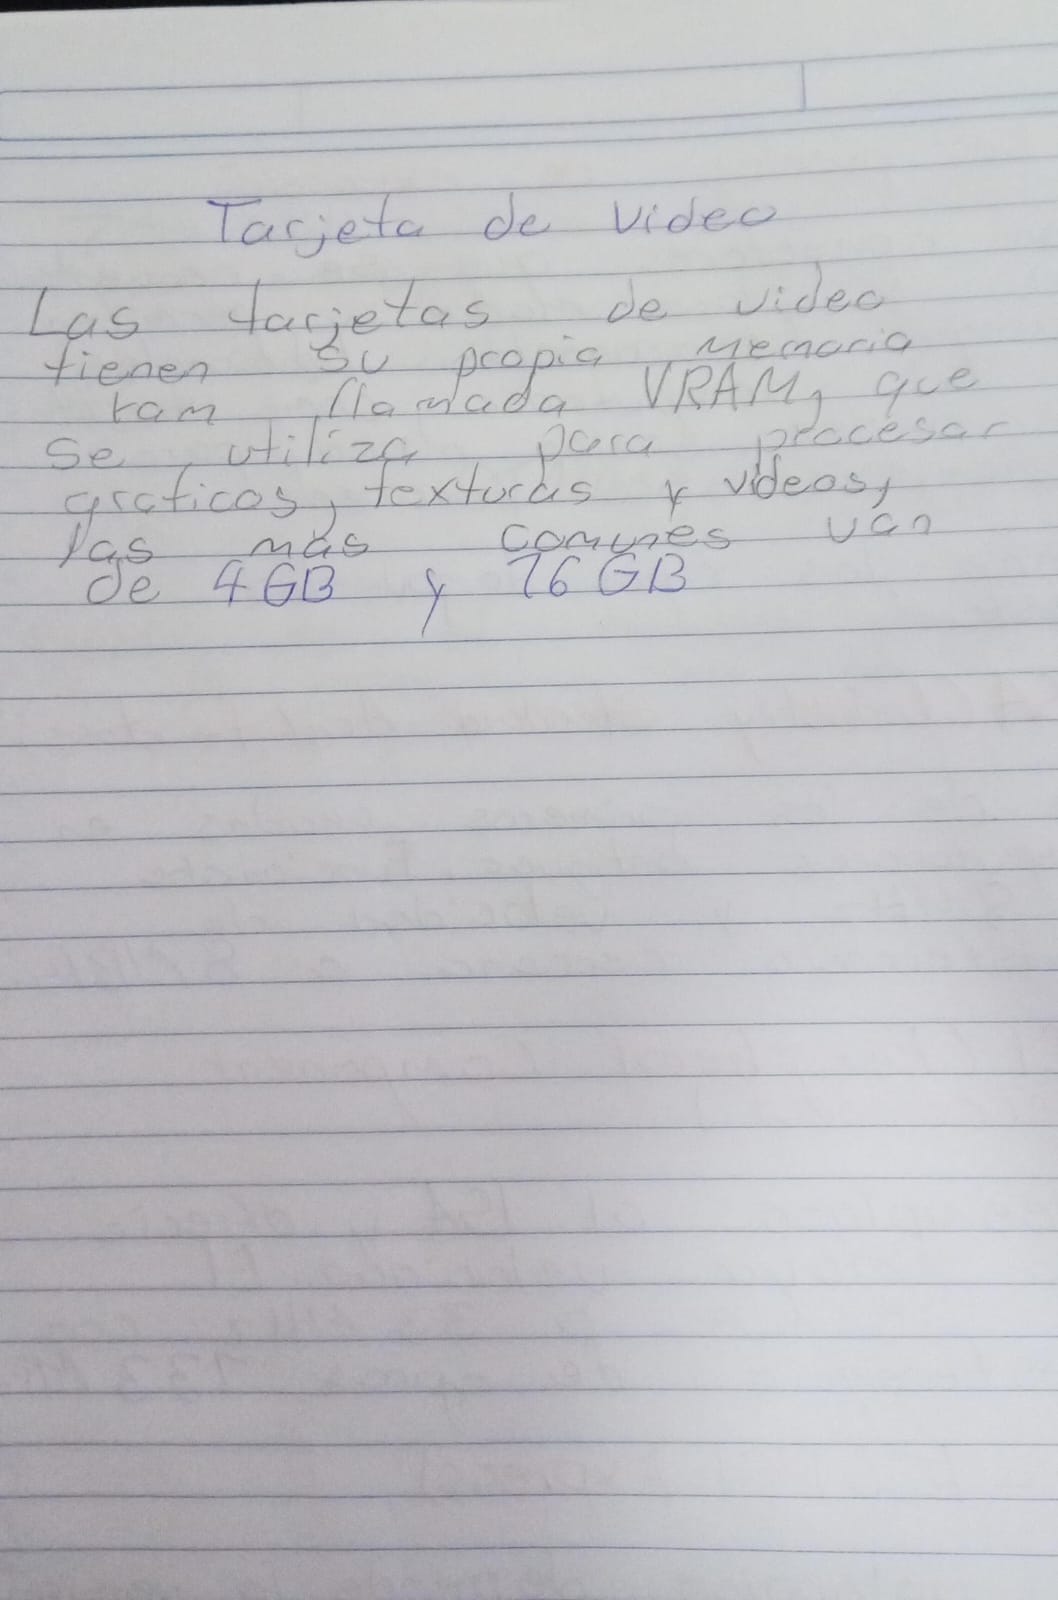 Tarjeta de video
Las tarjetas de video
tienen su propia memoria
ram llamada VRAM, que
se utiliza para procesar
graficos, texturas y videos,
las más comunes van
de 4GB y 16GB